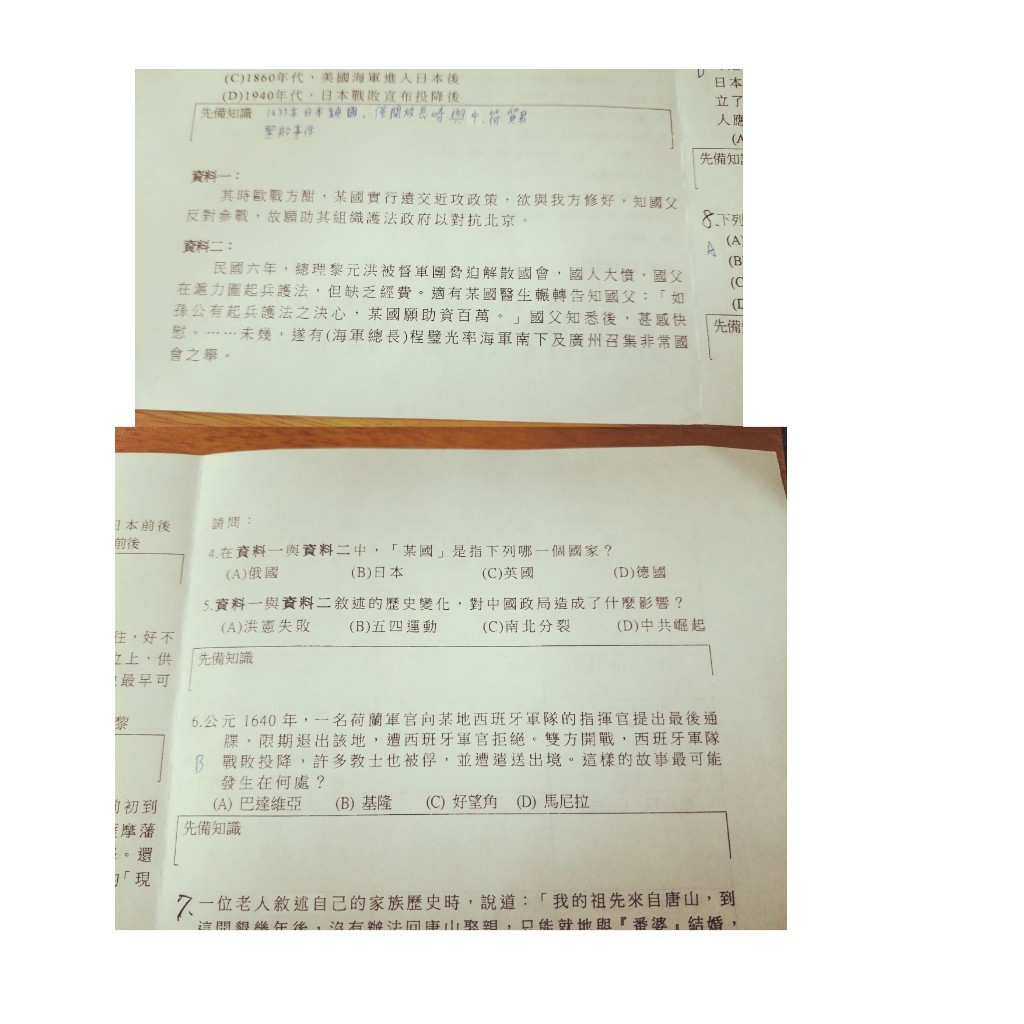 (C)1860年代，美國海軍進入日本後
(D)1940年代，日本戰敗宣布投降後
先備知識 1633年日本鎖國，僅開放長崎與中、荷貿易
黑船事件
資料一：
其時歐戰方酣，某國實行遠交近攻政策，欲與我方修好，知國父
反對參戰，故願助其組織護法政府以對抗北京。
資料二：
民國六年，總理黎元洪被督軍團脅迫解散國會，國人大憤，國父
在滬力圖起兵護法，但缺乏經費。適有某國醫生輾轉告知國父：「如
孫公有起兵護法之決心，某國願助資百萬。」國父知悉後，甚感快
慰。……未幾，遂有(海軍總長)程璧光率海軍南下及廣州召集非常國
會之舉。
日本
立了
人應
(A
先備知
8、下列
A (A)
(B
(C
(D
先備
請問：
4.在資料一與資料二中，「某國」是指下列哪一個國家？
(A)俄國 (B)日本 (C)英國 (D)德國
5.資料一與資料二敘述的歷史變化，對中國政局造成了什麼影響？
(A)洪憲失敗 (B)五四運動 (C)南北分裂 (D)中共崛起
先備知識
6.公元 1640 年，一名荷蘭軍官向某地西班牙軍隊的指揮官提出最後通
牒，限期退出該地，遭西班牙軍官拒絕。雙方開戰，西班牙軍隊
B 戰敗投降，許多教士也被俘，並遭遣送出境。這樣的故事最可能
發生在何處？
(A) 巴達維亞 (B) 基隆 (C) 好望角 (D) 馬尼拉
先備知識
7、一位老人敘述自己的家族歷史時，說道：「我的祖先來自唐山，到
這開墾幾年後，沒有辦法回唐山娶親，只能就地與『番婆』結婚，
日本前後
前後
往，好不
立上，供
最早可
黎
初到
摩藩
。還
「現